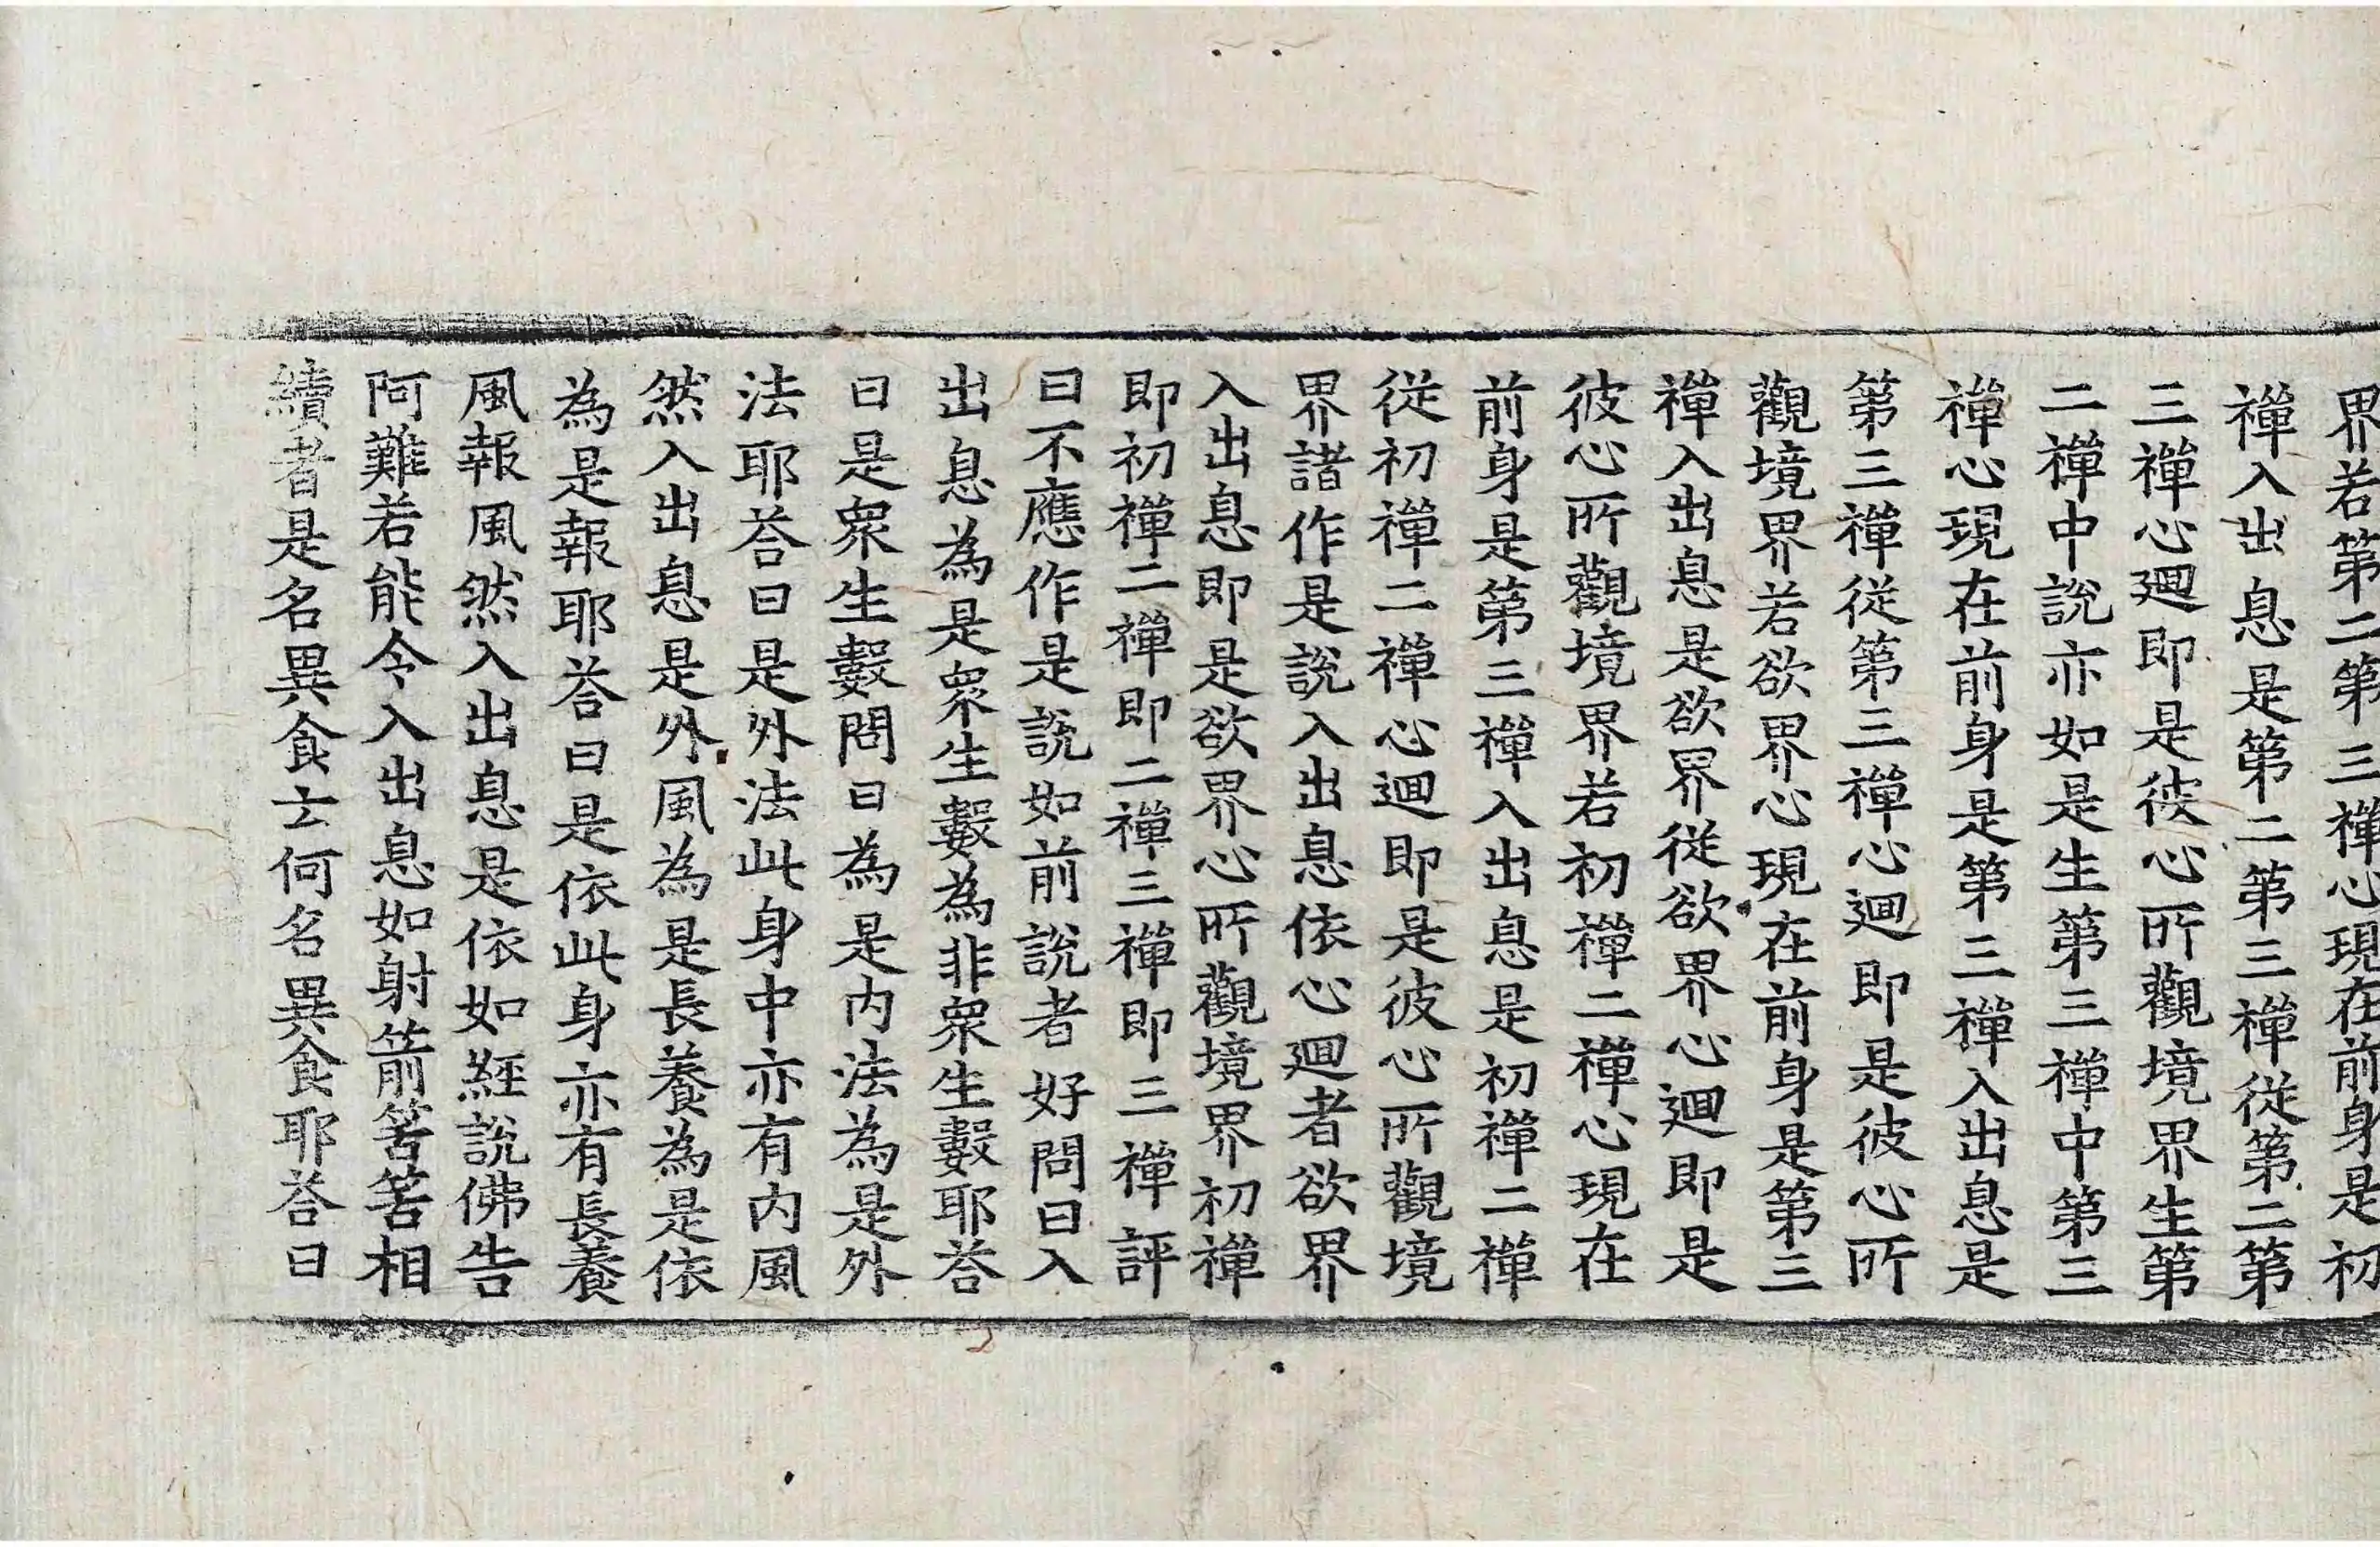 界若第二第三禪心現在前身是初
禪入出息是第二第三禪從第二第
三禪心迴即是彼心所觀境界生第
二禪中說亦如是生第三禪中第三
禪心現在前身是第三禪入出息是
第三禪從第三禪心迴即是彼心所
觀境界若欲界心現在前身是第三
禪入出息是欲界從欲界心迴即是
彼心所觀境界若初禪二禪心現在
前身是第三禪入出息是初禪二禪
從初禪二禪心迴即是彼心所觀境
界諸作是說入出息依心迴者欲界
入出息即是欲界心所觀境界初禪
即初禪二禪即二禪三禪即三禪評
曰不應作是說如前說者好問曰入
出息為是衆生數為非衆生數耶荅
曰是衆生數問曰為是内法為是外
法耶荅曰是外法此身中亦有内風
然入出息是外風為是長養為是依
為是報耶荅曰是依此身亦有長養
風報風然入出息是依如經說佛告
阿難若能令入出息如射箭筈筈相
續者是名異食士何名異食耶荅曰